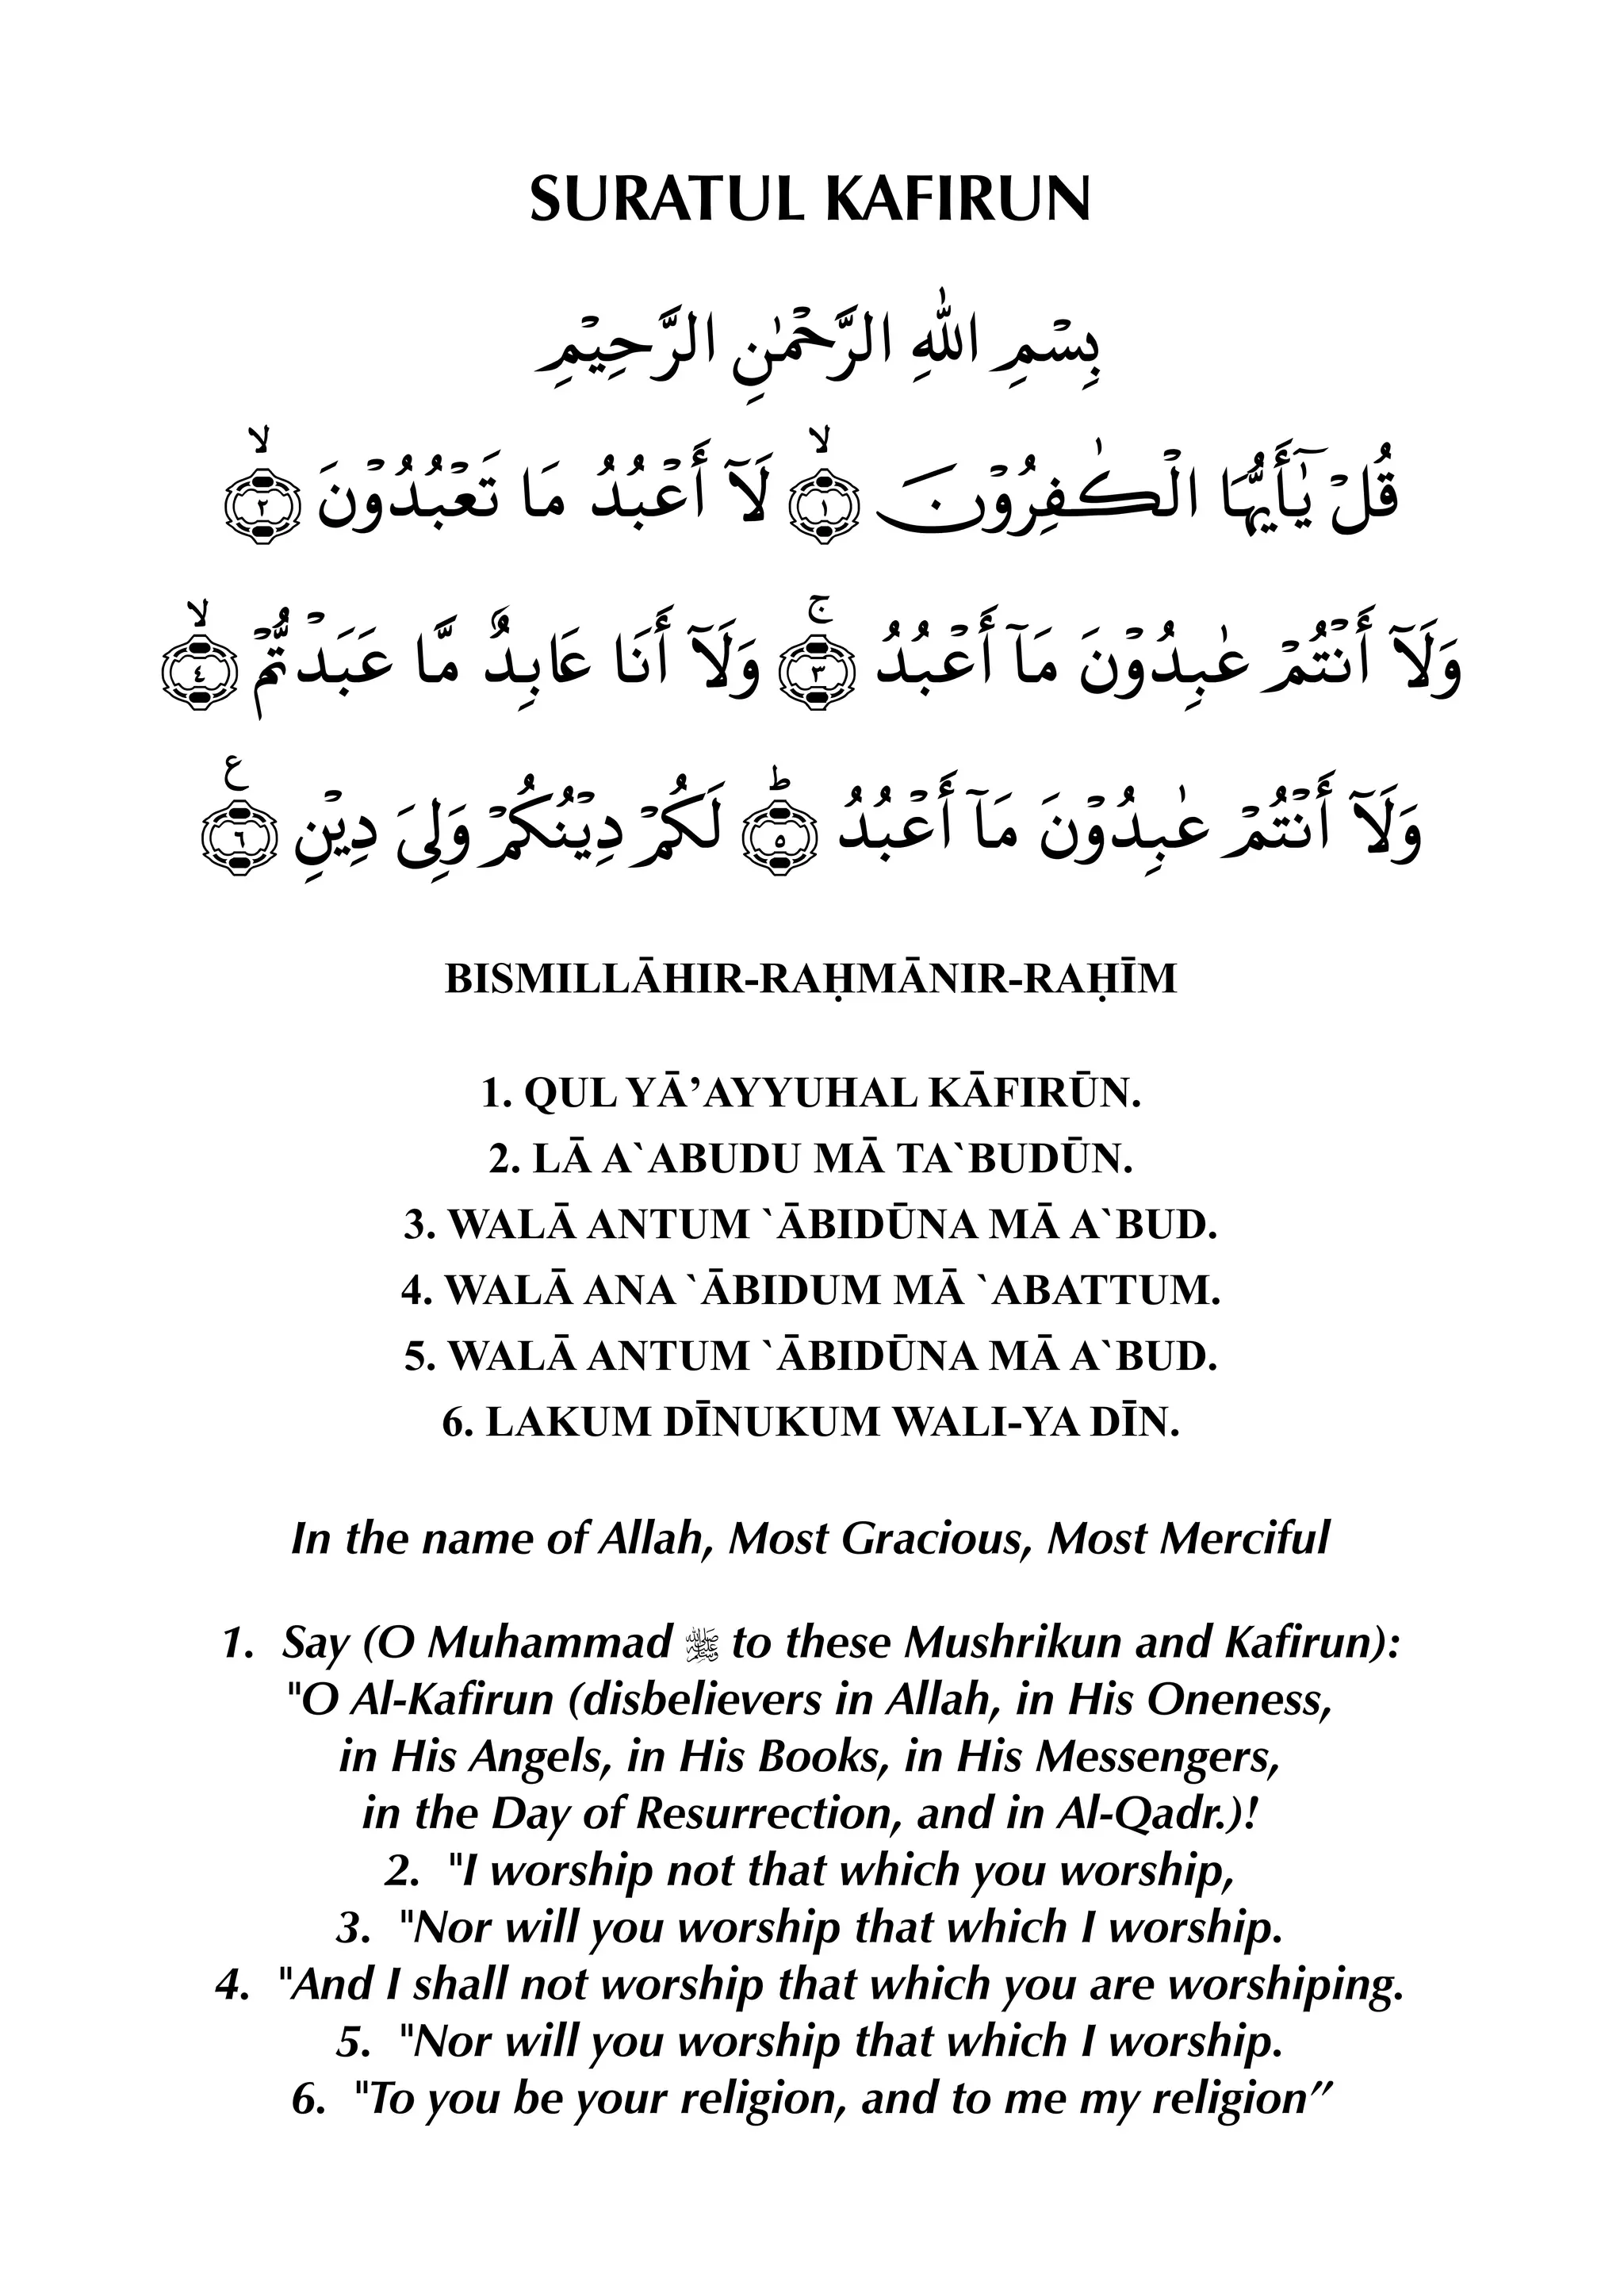 SURATUL KAFIRUN
بِسْمِ اللهِ الرَّحْمٰنِ الرَّحِيْمِ
قُلْ يٰٓأَيُّهَا الْكٰفِرُوْنَ ۙ﴿١﴾ لَآ أَعْبُدُ مَا تَعْبُدُوْنَ ۙ﴿٢﴾
وَلَآ أَنْتُمْ عٰبِدُوْنَ مَآ أَعْبُدُ ۚ﴿٣﴾ وَلَآ أَنَا عَابِدٌ مَّا عَبَدْتُّمْ ۙ﴿٤﴾
وَلَآ أَنْتُمْ عٰبِدُوْنَ مَآ أَعْبُدُ ؕ﴿٥﴾ لَكُمْ دِيْنُكُمْ وَلِىَ دِيْنِ ࣖ﴿٦﴾
BISMILLĀHIR-RAḤMĀNIR-RAḤĪM
1. QUL YĀ’AYYUHAL KĀFIRŪN.
2. LĀ A`ABUDU MĀ TA`BUDŪN.
3. WALĀ ANTUM `ĀBIDŪNA MĀ A`BUD.
4. WALĀ ANA `ĀBIDUM MĀ `ABATTUM.
5. WALĀ ANTUM `ĀBIDŪNA MĀ A`BUD.
6. LAKUM DĪNUKUM WALI-YA DĪN.
In the name of Allah, Most Gracious, Most Merciful
1. Say (O Muhammad ﷺ to these Mushrikun and Kafirun):
"O Al-Kafirun (disbelievers in Allah, in His Oneness,
in His Angels, in His Books, in His Messengers,
in the Day of Resurrection, and in Al-Qadr.)!
2. "I worship not that which you worship,
3. "Nor will you worship that which I worship.
4. "And I shall not worship that which you are worshiping.
5. "Nor will you worship that which I worship.
6. "To you be your religion, and to me my religion”